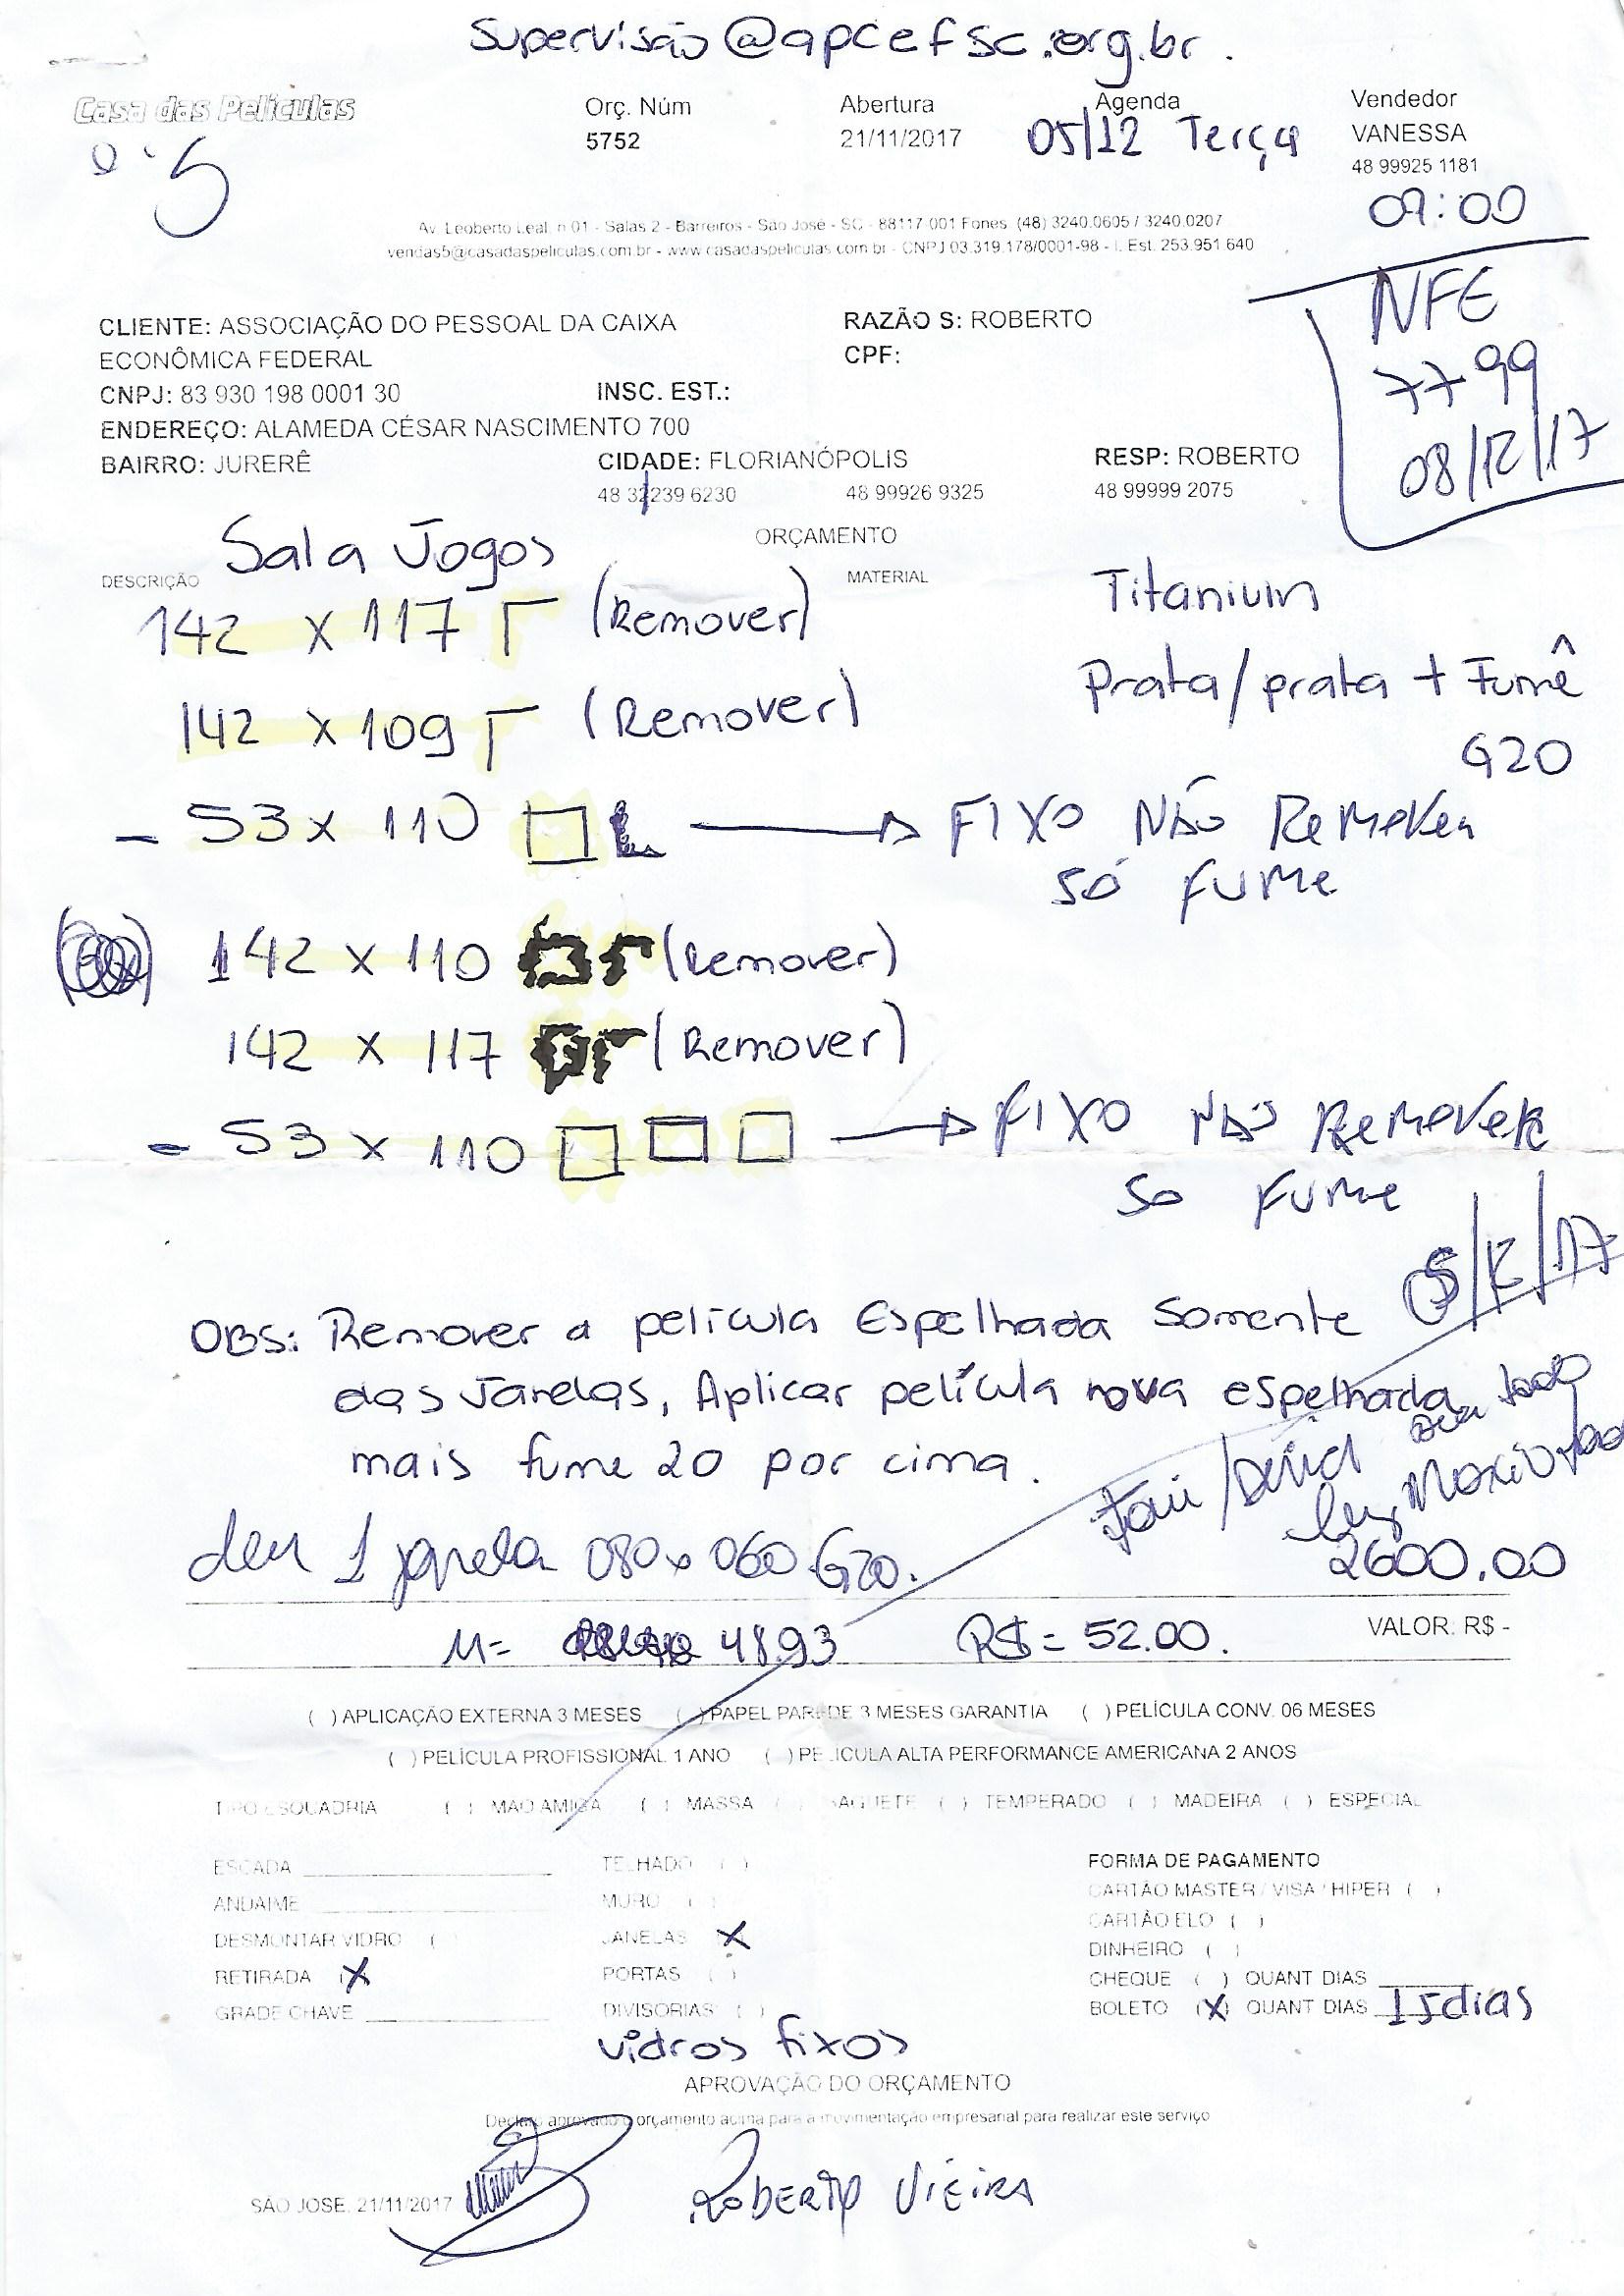 Supervisão@apcefsc.org.br.
Casa das Películas
Orç. Núm Abertura Agenda Vendedor
5752 21/11/2017 05/12 Terça VANESSA
48 99925 1181
5
09:00
Av. Leoberto Leal, n 01 - Salas 2 - Barreiros - São José - SC - 88117 001 Fones (48) 3240.0605 / 3240.0207
vendas5@casadaspeliculas.com.br - www.casadaspeliculas.com.br - CNPJ 03.319.178/0001-98 - I. Est. 253.951.640
NFE
7799
08/12/17
CLIENTE: ASSOCIAÇÃO DO PESSOAL DA CAIXA RAZÃO S: ROBERTO
ECONÔMICA FEDERAL CPF:
CNPJ: 83 930 198 0001 30 INSC. EST.:
ENDEREÇO: ALAMEDA CÉSAR NASCIMENTO 700
BAIRRO: JURERÊ CIDADE: FLORIANÓPOLIS RESP: ROBERTO
48 32239 6230 48 99926 9325 48 99999 2075
Sala Jogos ORÇAMENTO
DESCRIÇÃO MATERIAL
142 x 117 (Remover) Titanium
142 x 109 (Remover) Prata/prata + Fumê
G20
- 53 x 110 FIXO NÃO REMOVER
SÓ FUME
142 x 110 (Remover)
142 x 117 (Remover)
- 53 x 110 FIXO NÃO REMOVER
SO FUME
05/12/17
OBS: Remover a película Espelhada Somente
das Janelas, Aplicar película nova espelhada
mais fume 20 por cima.
deu 1 janela 080 x 060 G20.
2600.00
M= 48.93 R$ = 52.00. VALOR: R$ -
( ) APLICAÇÃO EXTERNA 3 MESES ( ) PAPEL PAREDE 3 MESES GARANTIA ( ) PELÍCULA CONV. 06 MESES
( ) PELÍCULA PROFISSIONAL 1 ANO ( ) PELICULA ALTA PERFORMANCE AMERICANA 2 ANOS
TIPO ESQUADRIA ( ) MAO AMIGA ( ) MASSA ( ) BAGUETE ( ) TEMPERADO ( ) MADEIRA ( ) ESPECIAL
ESCADA TELHADO ( ) FORMA DE PAGAMENTO
ANDAIME MURO ( ) CARTÃO MASTER / VISA / HIPER ( )
DESMONTAR VIDRO ( ) JANELAS X CARTÃO ELO ( )
DINHEIRO ( )
RETIRADA (X) PORTAS ( ) CHEQUE ( ) QUANT DIAS
GRADE CHAVE DIVISORIAS ( ) BOLETO (X) QUANT DIAS 15dias
vidros fixos
APROVAÇÃO DO ORÇAMENTO
Declaro aprovado o orçamento acima para a movimentação empresarial para realizar este serviço
SÃO JOSE, 21/11/2017 ROBERTO VIEIRA